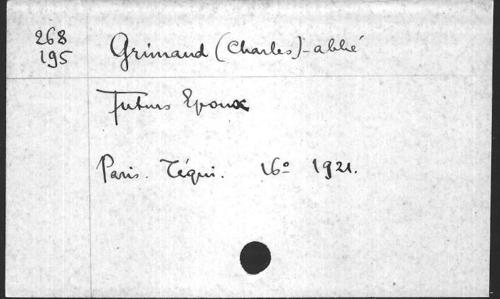 268
195
Grimaud (Charles) - abbé
Futurs Epoux
Paris. Téqui. 16º 1921.